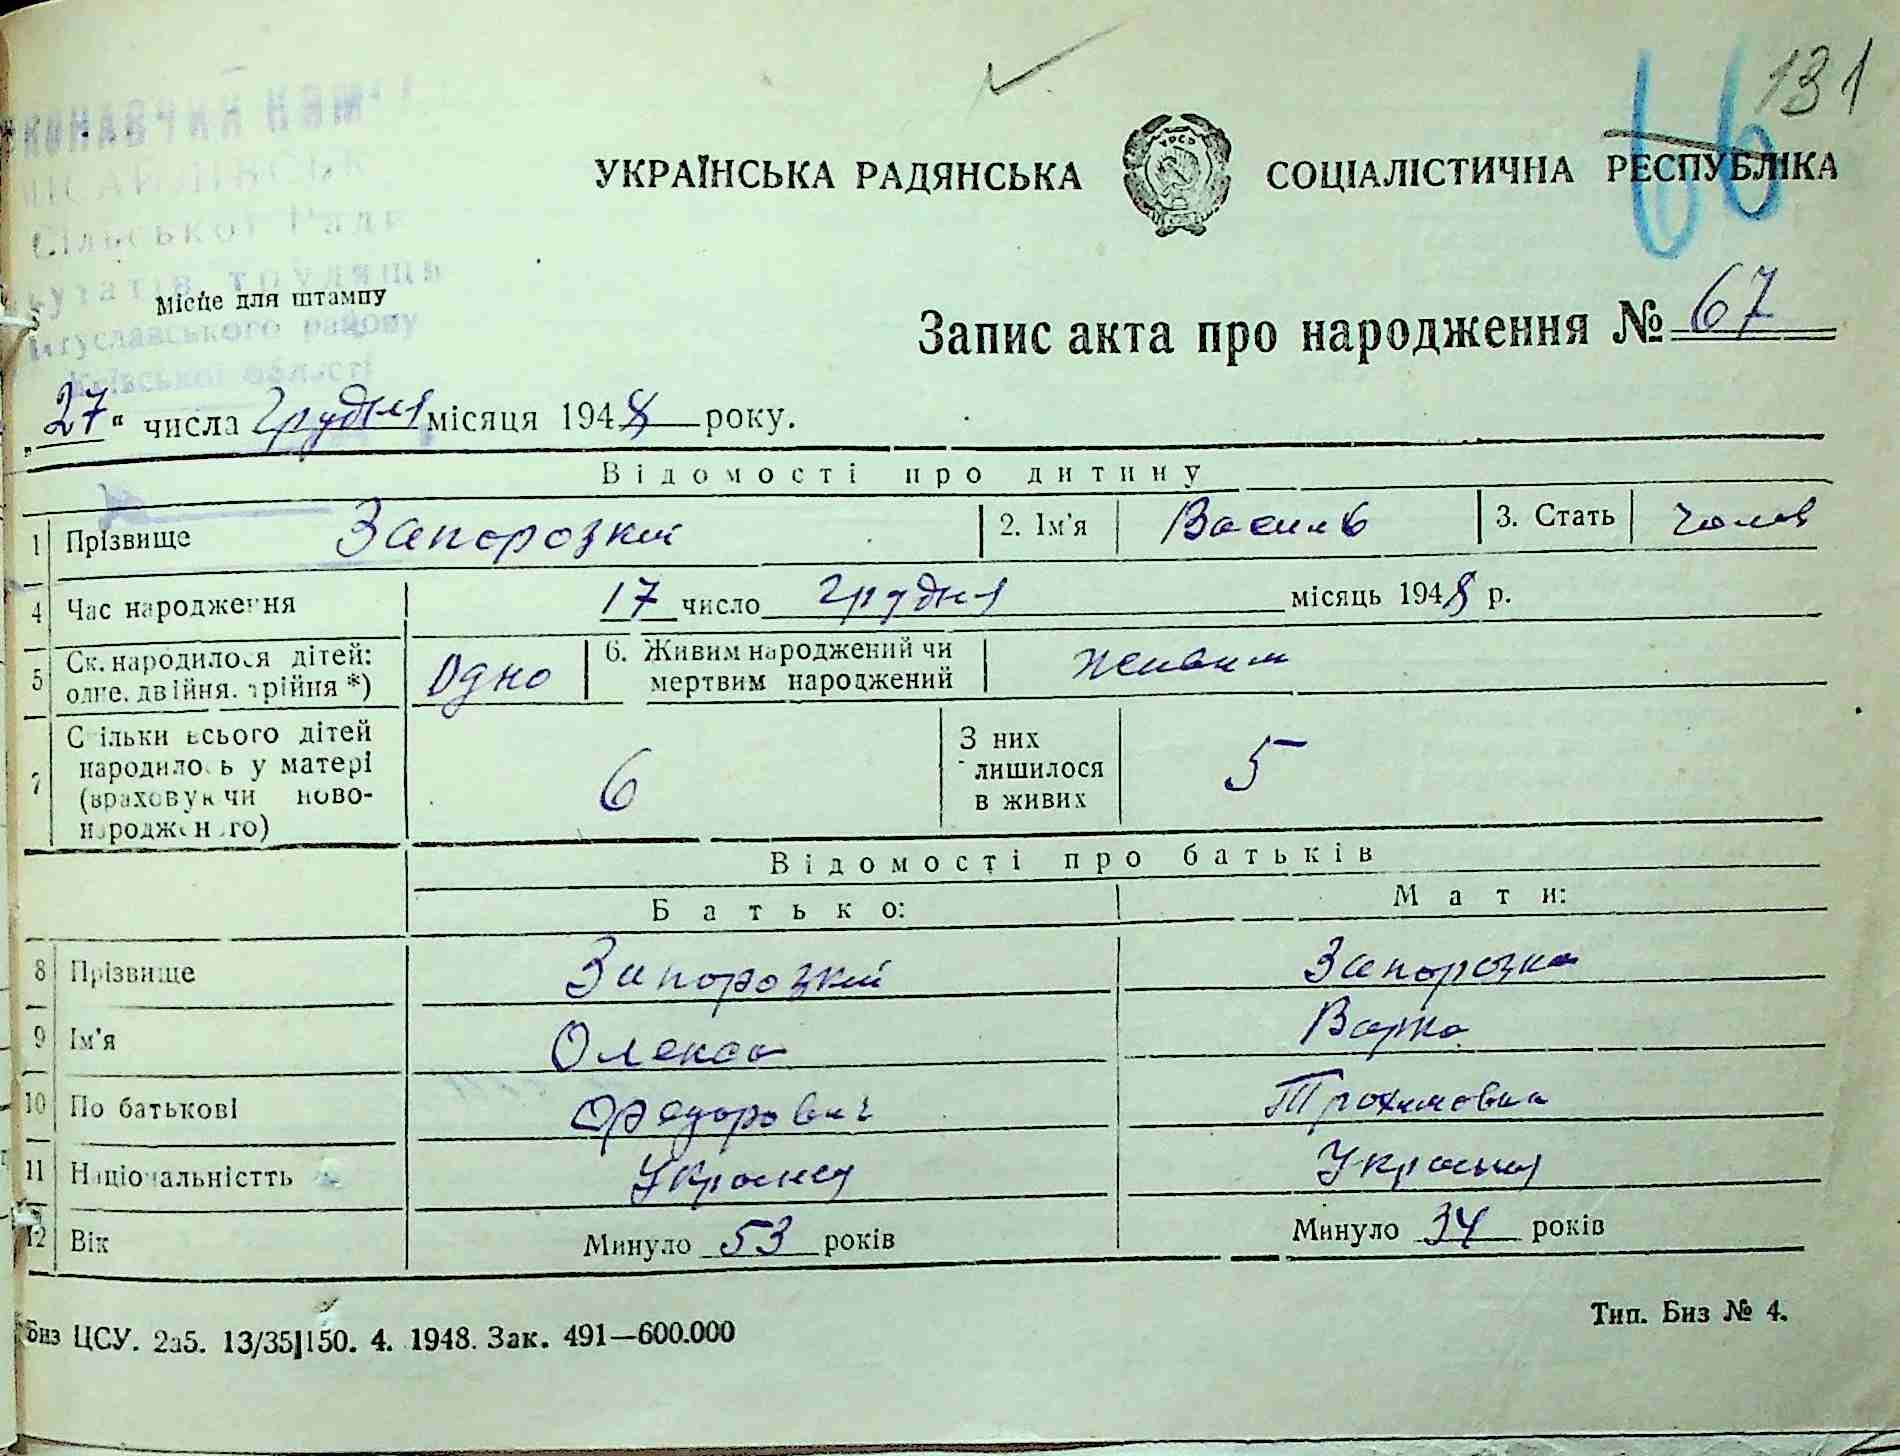 131
66
УКРАЇНСЬКА РАДЯНСЬКА СОЦІАЛІСТИЧНА РЕСПУБЛІКА
УРСР
Сільської Ради
Місце для штампу
району
Запис акта про народження № 67
„27“ числа грудня місяця 1948 року.
Відомості про дитину
1 Прізвище Запорозкий 2. Ім'я Василь 3. Стать чолов
4 Час народження 17 число грудня місяць 1948 р.
5 Ск. народилося дітей: одне, двійня, трійня *) Одно 6. Живим народжений чи мертвим народжений живим
7 Скільки всього дітей народилось у матері (враховуючи новонародженого) 6 З них лишилося в живих 5
Відомості про батьків
Батько: Мати:
8 Прізвище Запорозкий Запорозка
9 Ім'я Олекса Варка
10 По батькові Федорович Трохимовна
11 Національністть Украинец Украинка
12 Вік Минуло 53 років Минуло 34 років
Биз ЦСУ. 2а5. 13/35]150. 4. 1948. Зак. 491—600.000
Тип. Биз № 4.